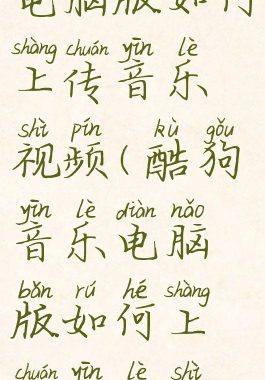 电脑版如何
shàng chuán yīn lè
上传音乐
shì pín kù gǒu
视频(酷狗
yīn lè diàn nǎo
音乐电脑
bǎn rú hé shàng
版如何上
chuán yīn lè shì